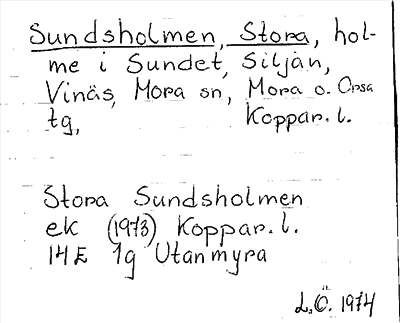 Sundsholmen, Stora, hol-
me i Sundet, Siljan,
Vinäs, Mora sn, Mora o. Orsa
tg, Koppar. l.
Stora Sundsholmen
ek (1973) Koppar. l.
14E 1g Utanmyra
L.Ö. 1974